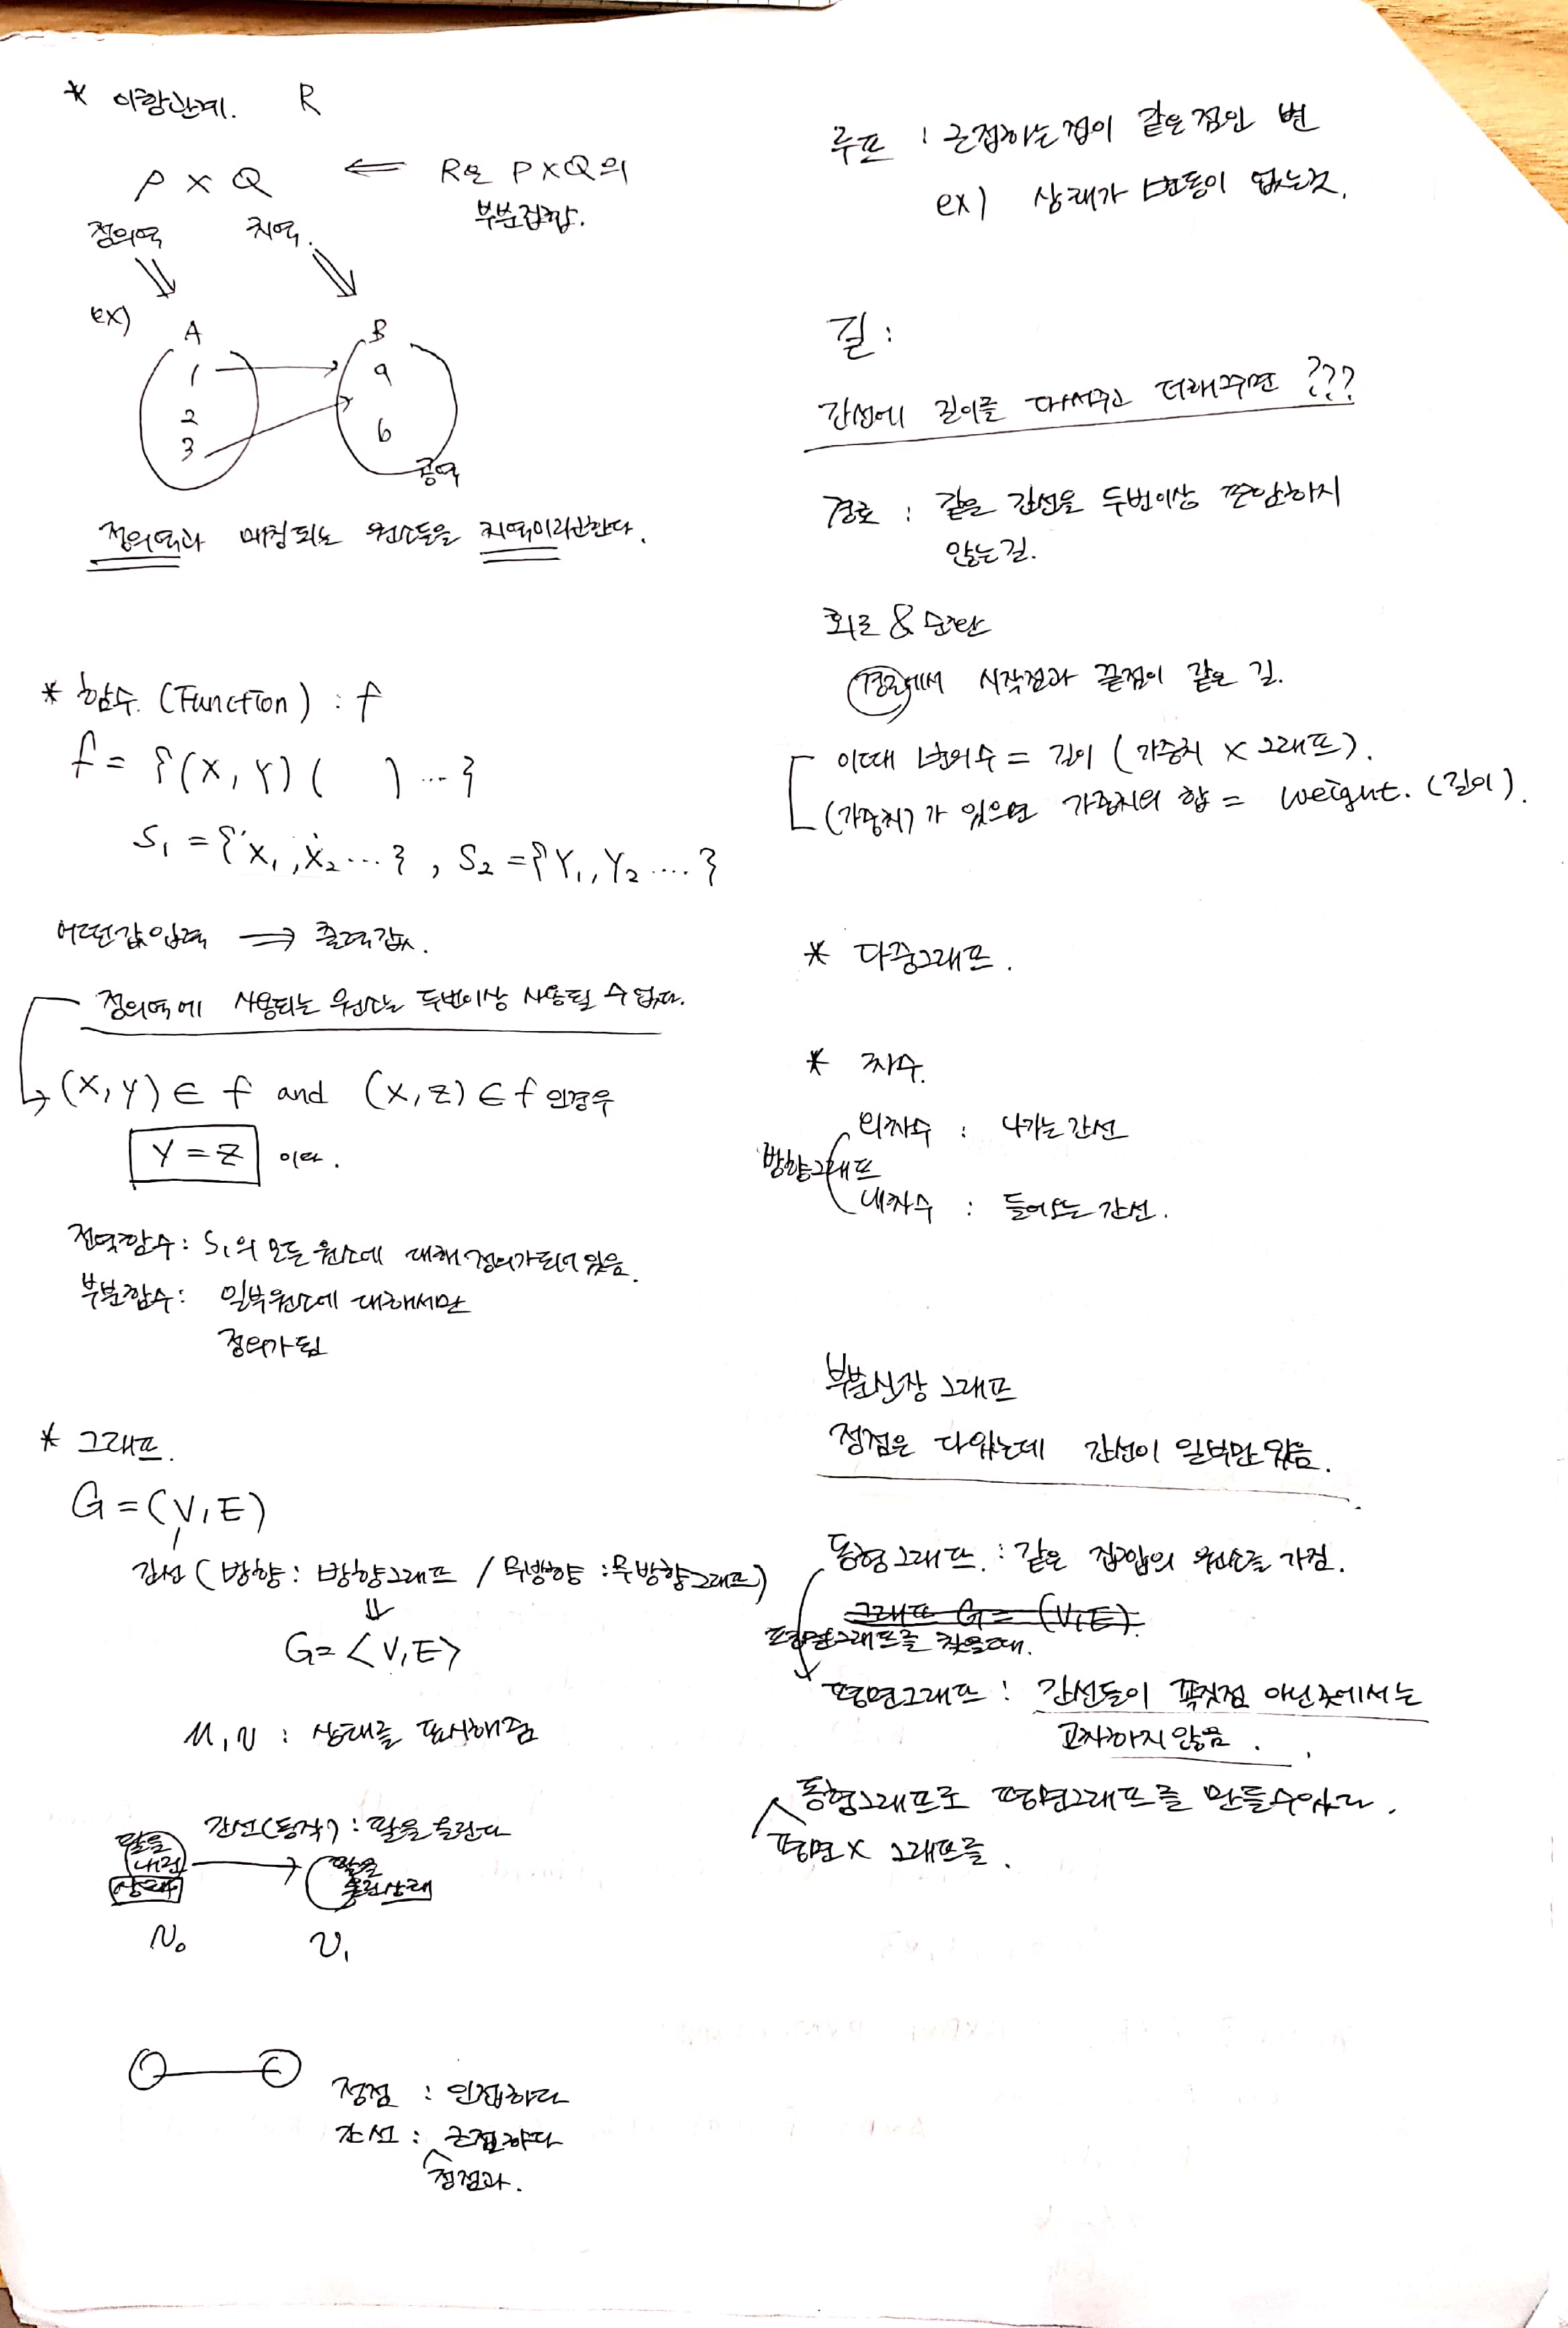 * 이항관계. R
P X Q ⇐ R은 PXQ의
부분집합.
정의역 치역.
ex)
A B
1 9
2
3 6
공역
정의역과 매칭되는 원소들을 치역이라고한다.
* 함수. (Function) : f
f = {(X, Y) ( ) ... }
S₁ = {X₁, X₂ ... } , S₂ = {Y₁, Y₂ .... }
어떤값입력 ⇒ 출력값.
정의역에 사용되는 원소는 두번이상 사용될 수 없다.
(X, Y) ∈ f and (X, Z) ∈ f 인경우
Y = Z 이다.
전역함수: S₁의 모든 원소에 대해 정의가되어 있음.
부분함수: 일부원소에 대해서만
정의가됨
* 그래프.
G = (V, E)
간선 ( 방향 : 방향그래프 / 무방향 : 무방향그래프 )
G = <V, E>
u, v : 상태를 표시해줌
간선(동작) : 팔을 올린다
팔을
내린
상태
팔을
올린상태
V₀ V₁
정점 : 인접하다
간선 : 근접하다
정점과.
루프 : 근접하는점이 같은점인 변
ex) 상태가 변동이 없는것.
길 :
간선에 길이를 다 더해주면 ???
경로 : 같은 간선을 두번이상 포함하지
않는길.
회로 & 순환
경로에서 시작점과 끝점이 같은 길.
이때 변의수 = 길이 ( 가중치 X 그래프 ).
(가중치)가 있으면 가중치의 합 = weight. (길이).
* 다중그래프.
* 차수.
외차수 : 나가는 간선
방향그래프
내차수 : 들어오는 간선.
부분신장 그래프
정점은 다있는데 간선이 일부만 있음.
동형그래프. : 같은 집합의 원소를 가짐.
그래프 G = (V, E).
평면그래프를 찾을때.
평면그래프 : 간선들이 꼭짓점 아닌곳에서는
교차하지 않음.
동형그래프로 평면그래프를 만들수있다.
평면 X 그래프를.